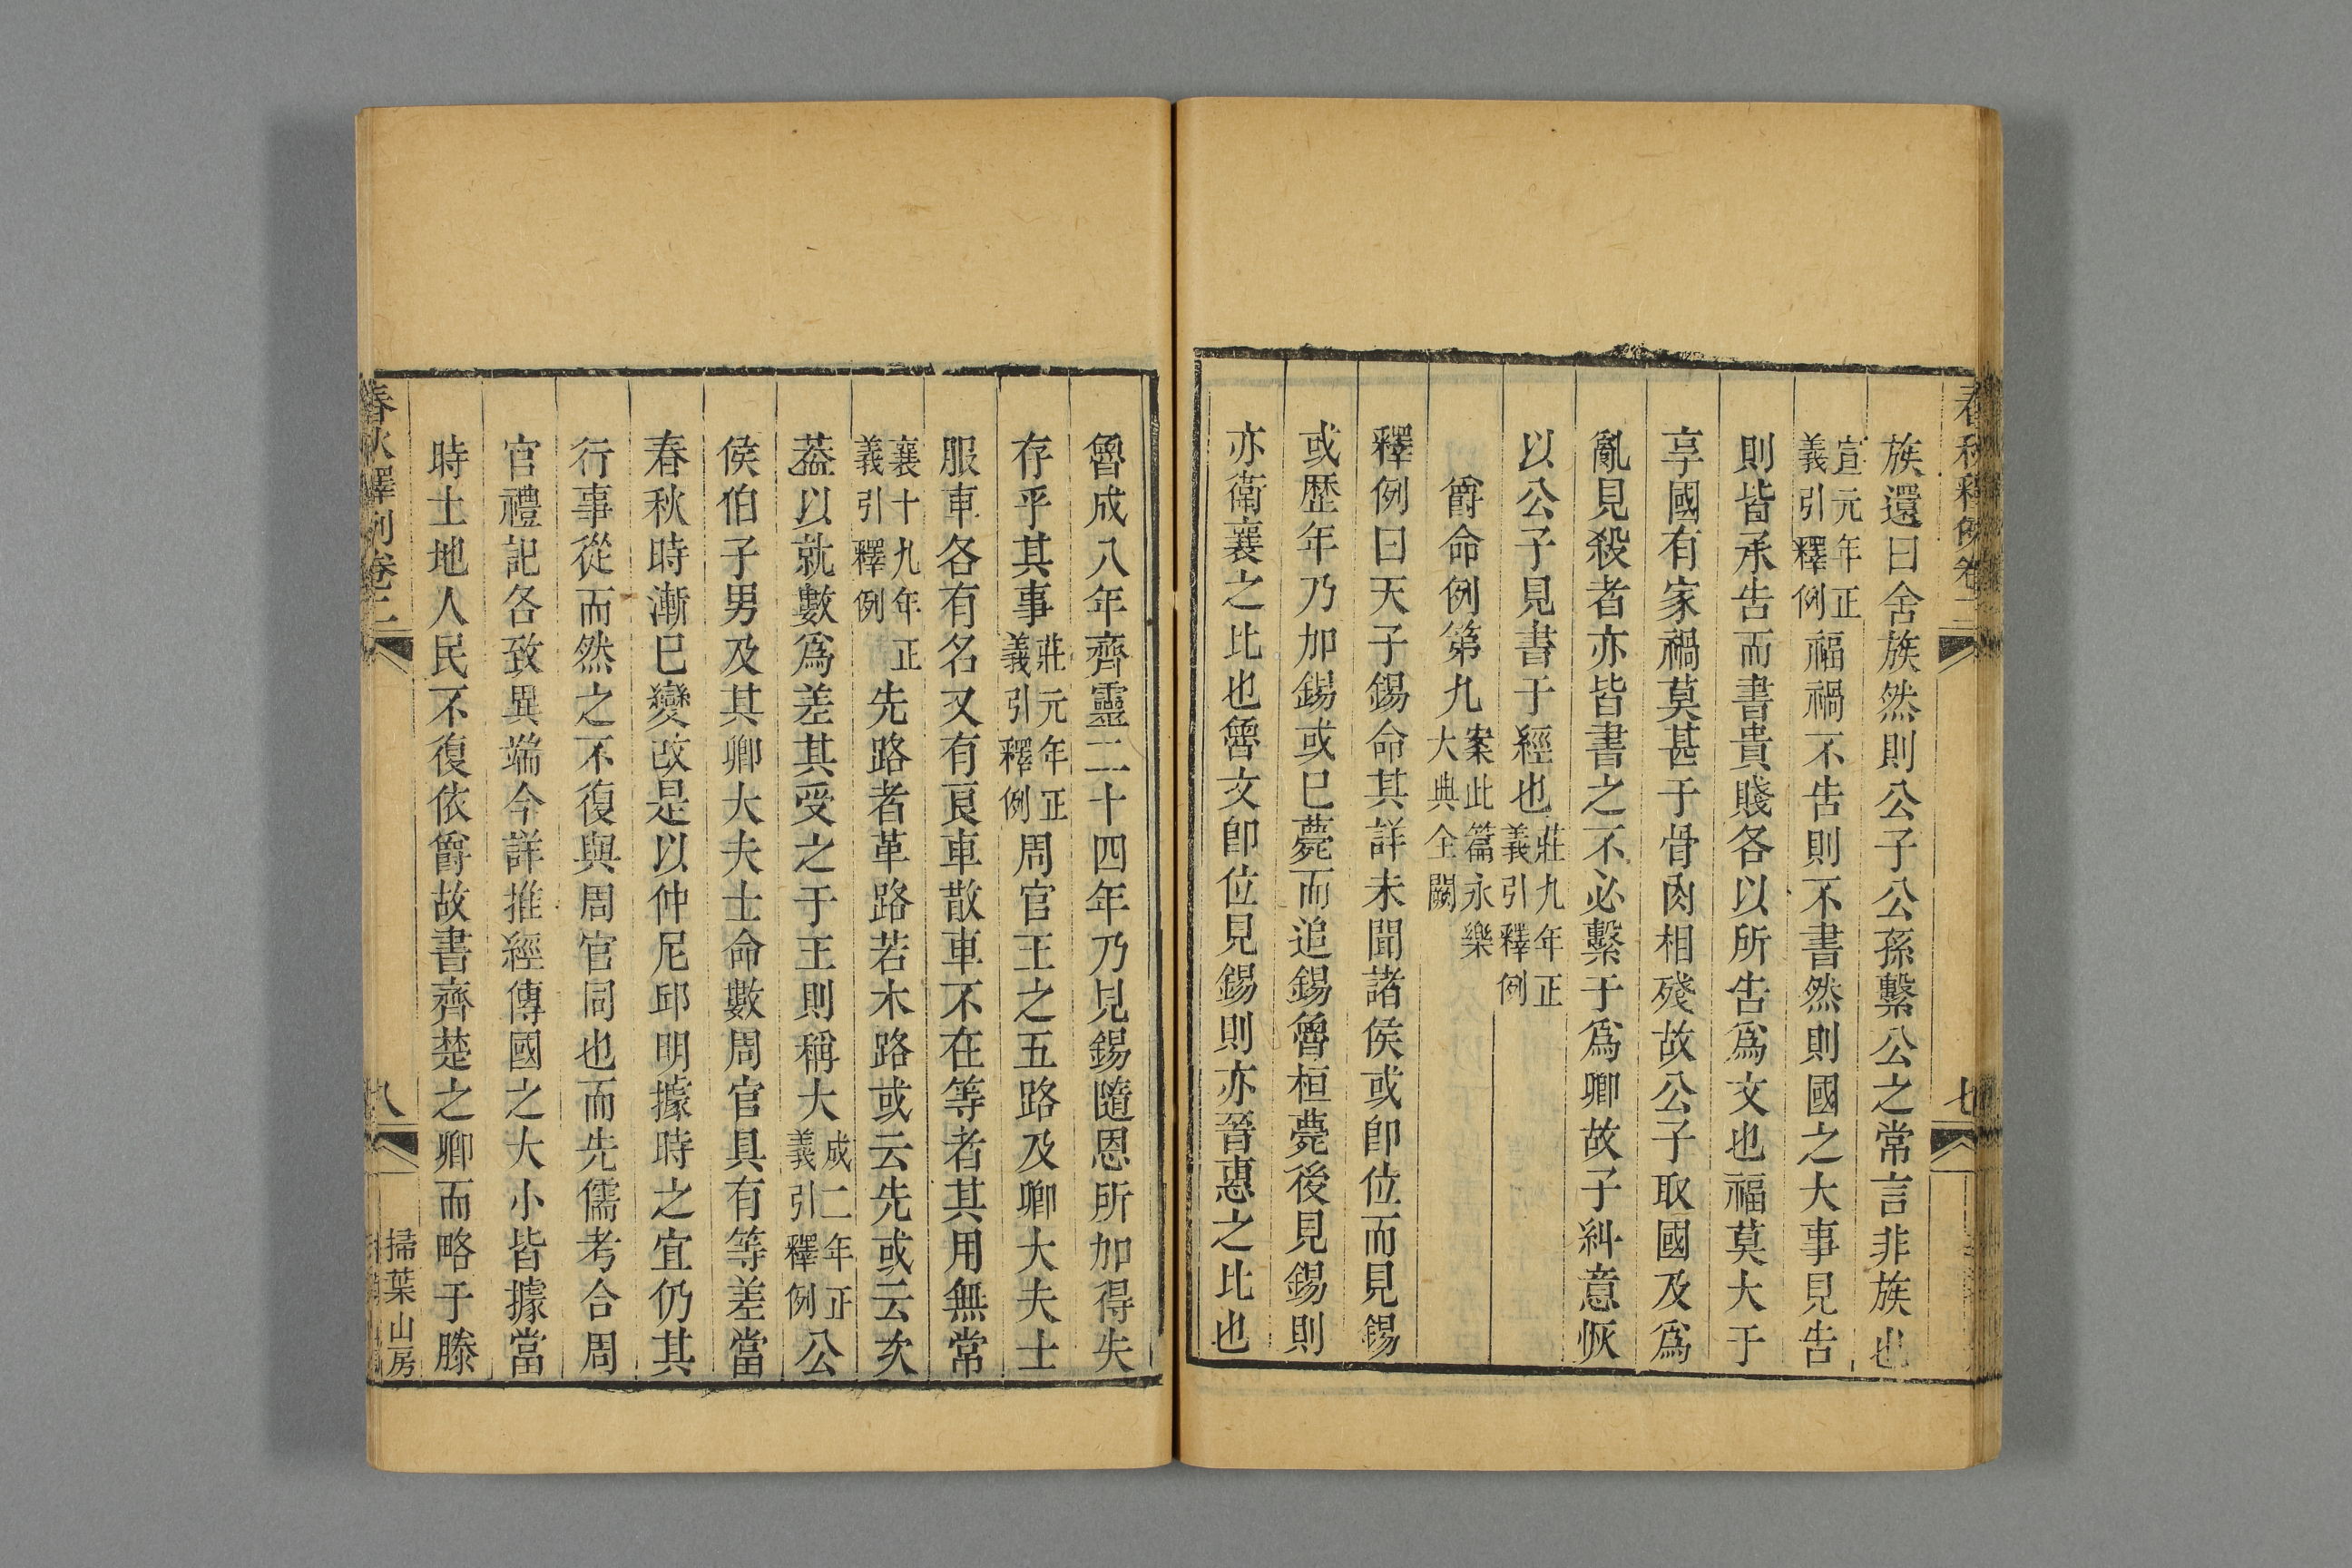 春秋釋例卷二
七
族還曰舍族然則公子公孫繫公之常言非族也
宣元年正義引釋例福禍不告則不書然則國之大事見告
則皆承告而書貴賤各以所告爲文也福莫大于
享國有家禍莫甚于骨肉相殘故公子取國及爲
亂見殺者亦皆書之不必繫于爲卿故子糾意恢
以公子見書于經也莊九年正義引釋例
爵命例第九案此篇永樂大典全闕
釋例曰天子錫命其詳未聞諸侯或卽位而見錫
或歷年乃加錫或巳薨而追錫魯桓薨後見錫則
亦衛襄之比也魯文卽位見錫則亦晉惠之比也
魯成八年齊靈二十四年乃見錫隨恩所加得失
存乎其事莊元年正義引釋例周官王之五路及卿大夫士
服車各有名又有良車散車不在等者其用無常
襄十九年正義引釋例先路者革路若木路或云先或云次
葢以就數爲差其受之于王則稱大成二年正義引釋例公
侯伯子男及其卿大夫士命數周官具有等差當
春秋時漸巳變改是以仲尼邱明據時之宜仍其
行事從而然之不復與周官同也而先儒考合周
官禮記各致異端今詳推經傳國之大小皆據當
時土地人民不復依爵故書齊楚之卿而略于滕
春秋釋例卷二
八
掃葉山房